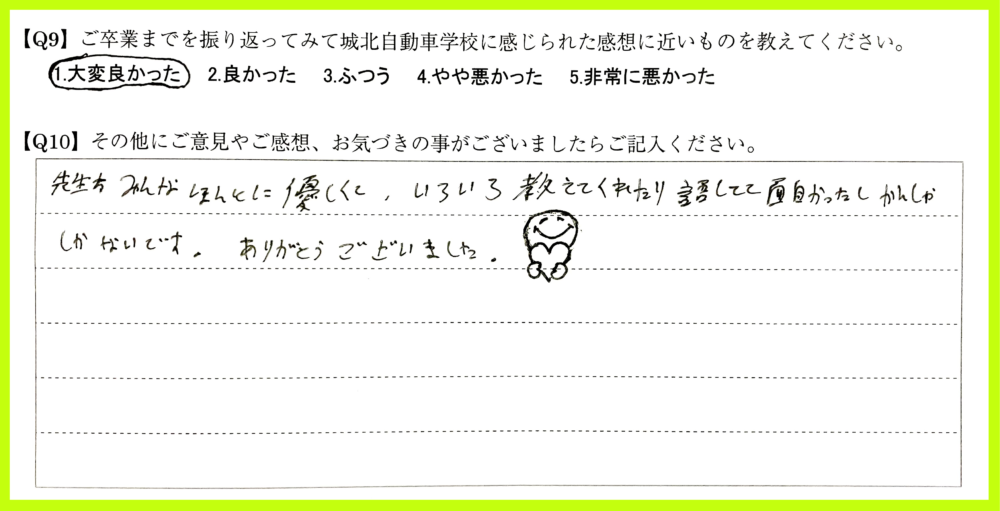 【Q9】ご卒業までを振り返ってみて城北自動車学校に感じられた感想に近いものを教えてください。
1.大変良かった 2.良かった 3.ふつう 4.やや悪かった 5.非常に悪かった
【Q10】その他にご意見やご感想、お気づきの事がございましたらご記入ください。
先生方みんなほんとに優しくて、いろいろ教えてくれたり話してて面白かったしかんしゃ
しかないです。ありがとうございました。